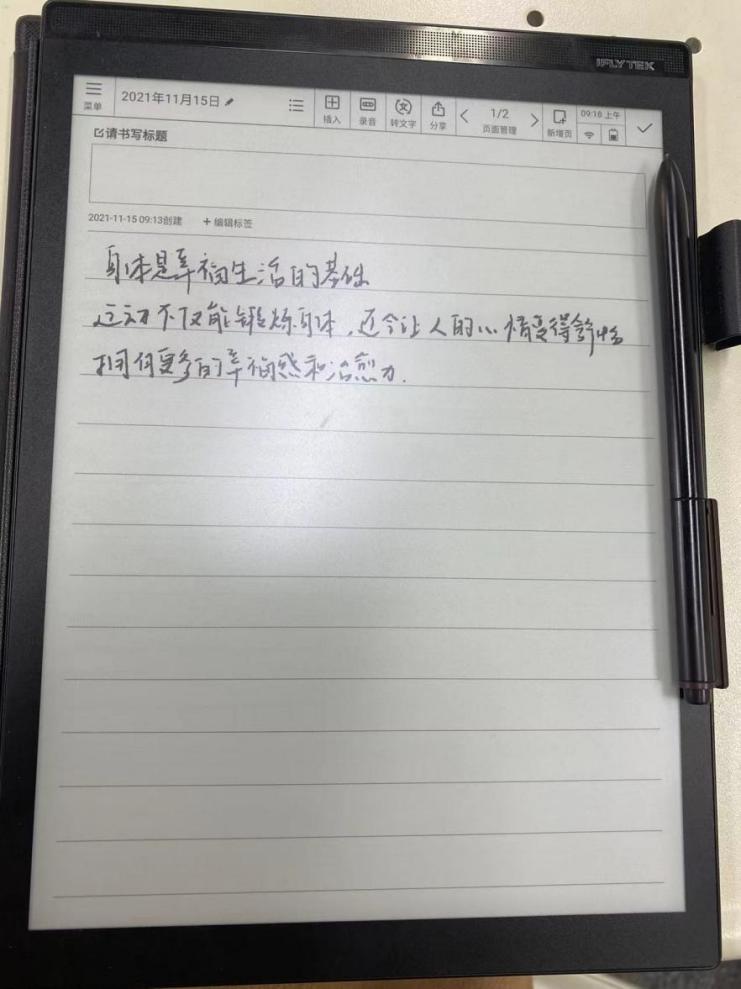 iFLYTEK
菜单
2021年11月15日
插入
录音
转文字
分享
1/2
页面管理
新增页
09:16 上午
请书写标题
2021-11-15 09:13创建 + 编辑标签
身体是幸福生活的基础
运动不仅能锻炼身体，还会让人的心情变得舒畅
拥有更多的幸福感和治愈力.